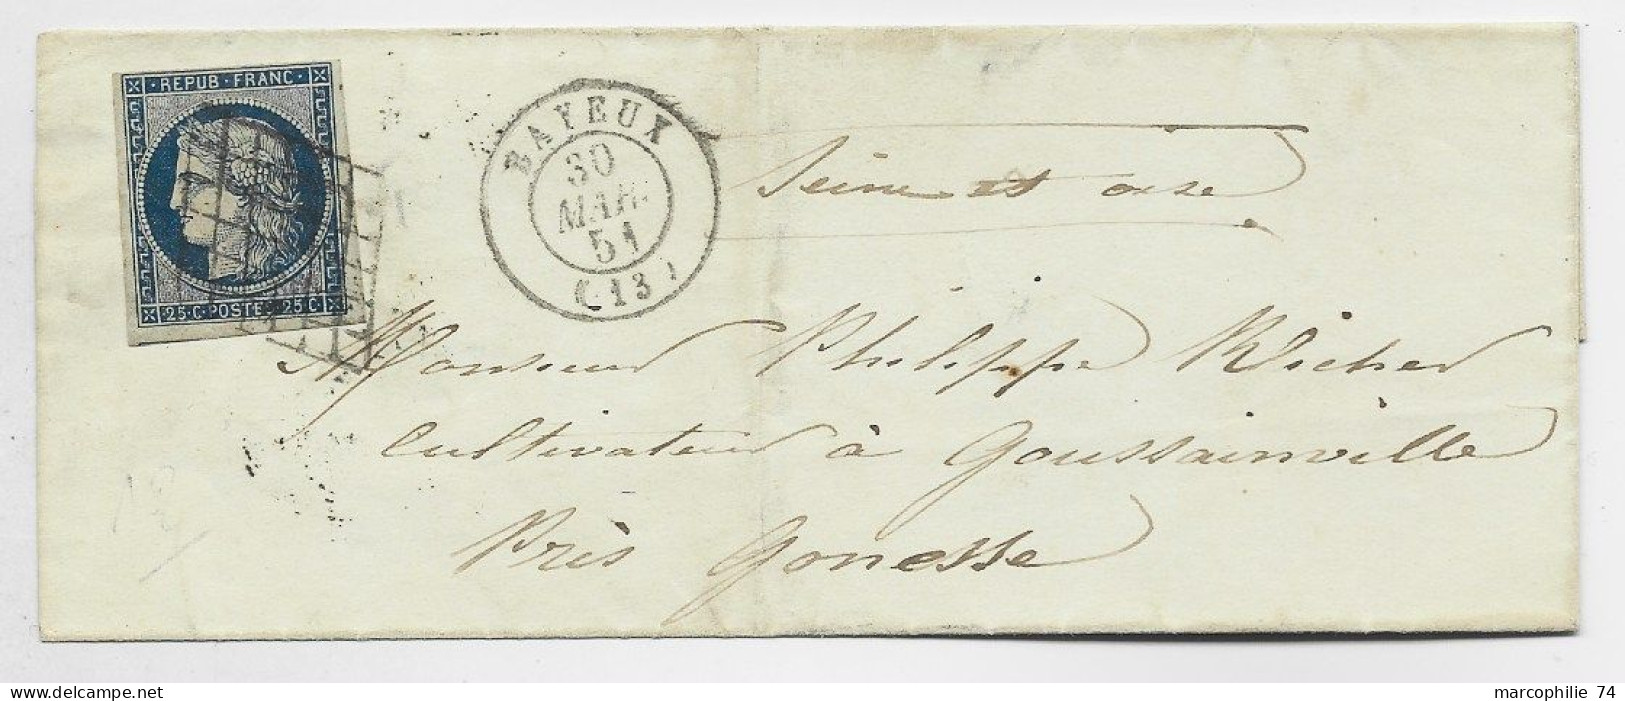 REPUB · FRANC
25 · C · POSTE 25 C
BAYEUX
30
MAR.
51
(13)
Seine et oise
Monsieur Philippe Richer
Cultivateur à Goussainville
Près Gonesse
delcampe.net
marcophilie 74